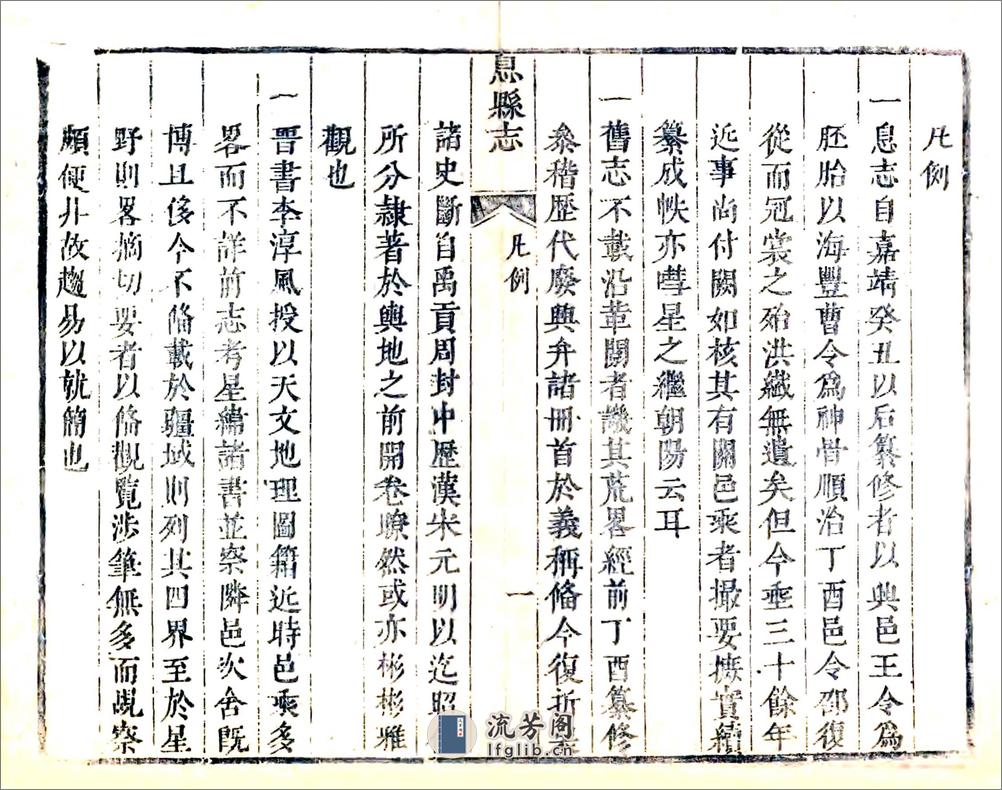 凡例
一息志自嘉靖癸丑以后纂修者以興邑王令爲
胚胎以海豐曹令爲神骨順治丁酉邑令邵復
從而冠裳之殆洪纖無遺矣但今垂三十餘年
近事尚付闕如核其有關邑乘者撮要摭實續
纂成帙亦嘒星之繼朝陽云耳
一舊志不載沿革闗者譏其荒畧經前丁酉纂修
叅稽歴代廢興弁諸冊首於義稱俻今復折
息縣志
凡例
一
諸史斷自禹貢周封中歴漢宋元明以迄昭
所分隷著於輿地之前開卷瞭然或亦彬彬雅
觀也
一晋書李淳風授以天文地理圖籍近時邑乘多
畧而不詳前志考星緯諸書並察隣邑次舍旣
博且侈今不俻載於疆域則列其四界至於星
野則畧摘切要者以俻觀覧涉筆無多而覘察
頗便非故趨易以就簡也
流芳阁
lfglib.cn